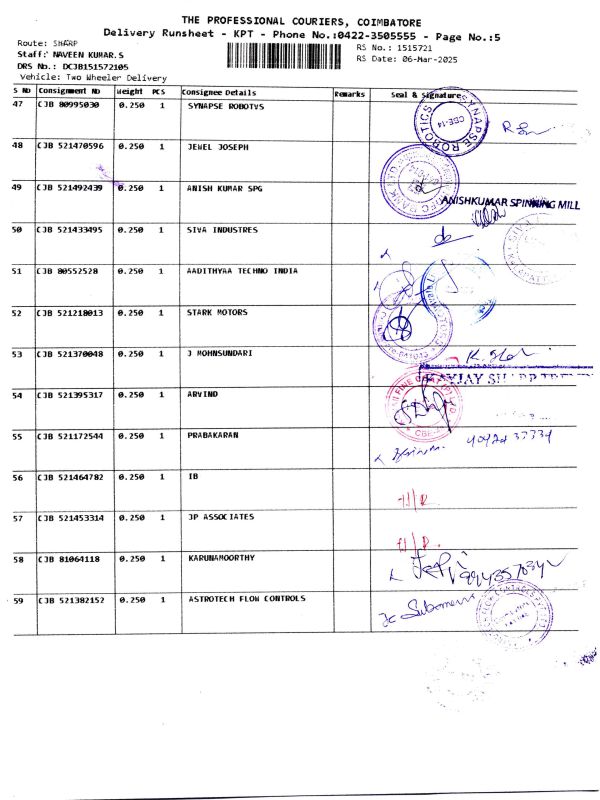 THE PROFESSIONAL COURIERS, COIMBATORE
Delivery Runsheet - KPT - Phone No.:0422-3505555 - Page No.:5
Route: SHARP
Staff: NAVEEN KUMAR.S
DRS No.: DCJB151572105
Vehicle: Two Wheeler Delivery
RS No.: 1515721
RS Date: 06-Mar-2025
S No Consignment No Weight PCS Consignee Details Remarks Seal & Signature
47 CJB 80995030 0.250 1 SYNAPSE ROBOTVS
SYNAPSE ROBOTICS CBE-14
48 CJB 521470596 0.250 1 JEWEL JOSEPH
49 CJB 521492439 0.250 1 ANISH KUMAR SPG
ANISHKUMAR SPINNING MILL
50 CJB 521433495 0.250 1 SIVA INDUSTRES
51 CJB 80552528 0.250 1 AADITHYAA TECHNO INDIA
52 CJB 521218013 0.250 1 STARK MOTORS
53 CJB 521370048 0.250 1 J MOHNSUNDARI
54 CJB 521395317 0.250 1 ARVIND
55 CJB 521172544 0.250 1 PRABAKARAN
56 CJB 521464782 0.250 1 IB
57 CJB 521453314 0.250 1 JP ASSOCIATES
58 CJB 81064118 0.250 1 KARUNAMOORTHY
59 CJB 521382152 0.250 1 ASTROTECH FLOW CONTROLS